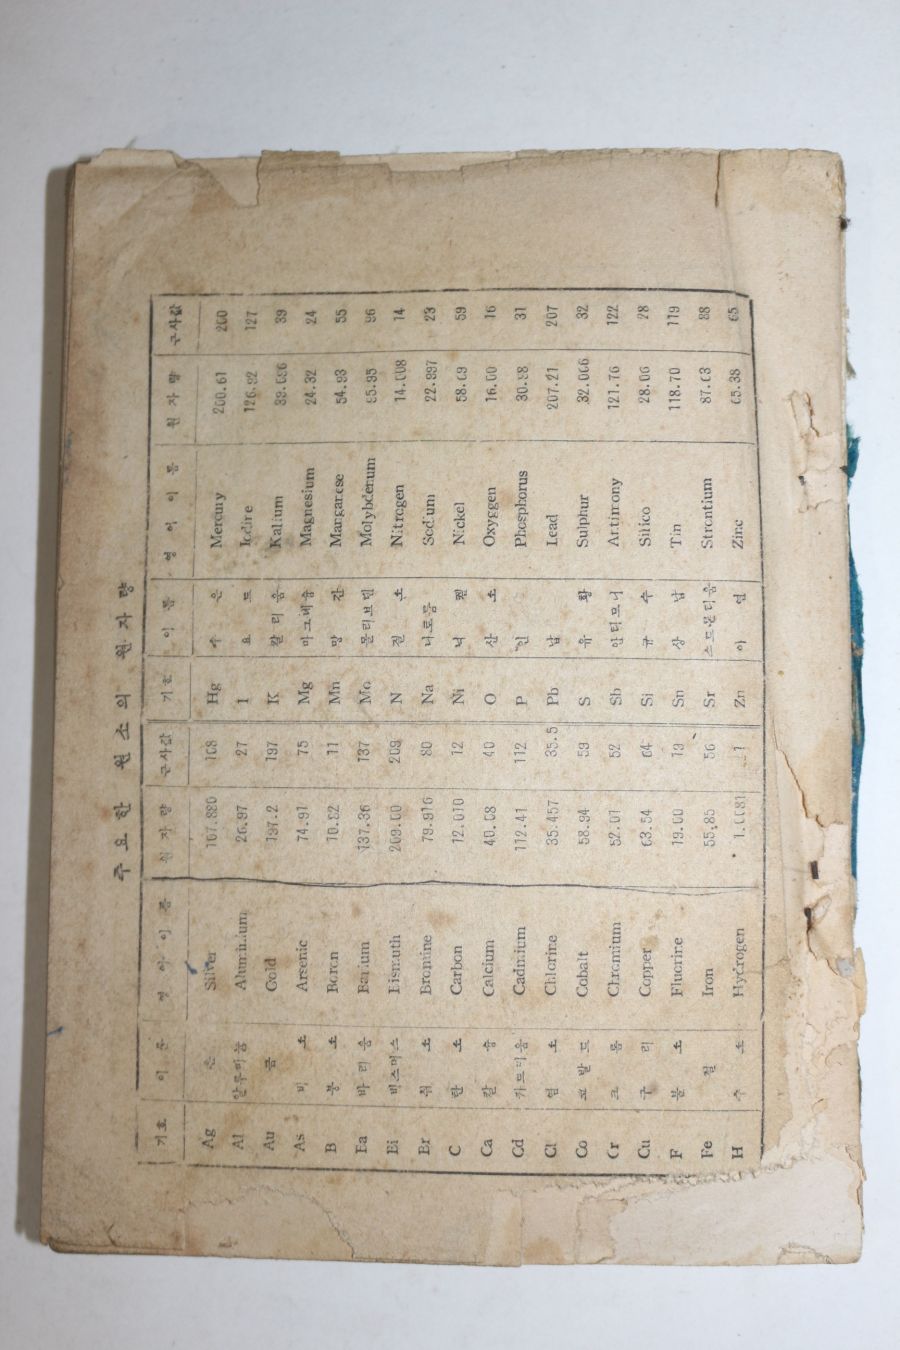 주요한 원소의 원자량
기호 이름 영어이름 원자량 근사값 기호 이름 영어이름 원자량 근사값
Ag 은 Silver 107.880 108 Hg 수은 Mercury 200.61 200
Al 알루미늄 Aluminium 26.97 27 I 요드 Iodire 126.92 127
Au 금 Gold 197.2 197 K 칼리움 Kalium 39.096 39
As 비소 Arsenic 74.91 75 Mg 마그네슘 Magnesium 24.32 24
B 붕소 Boron 10.82 11 Mn 망간 Mangarese 54.93 55
Ba 바리움 Barium 137.36 137 Mo 몰리브덴 Molybdenum 95.95 96
Bi 비스머스 Bismuth 209.00 209 N 질소 Nitrogen 14.008 14
Br 취소 Bromine 79.916 80 Na 나트륨 Sodium 22.997 23
C 탄소 Carbon 12.010 12 Ni 니켈 Nickel 58.69 59
Ca 칼슘 Calcium 40.08 40 O 산소 Oxyggen 16.00 16
Cd 카드미움 Cadmium 112.41 112 P 인 Phosphorus 30.98 31
Cl 염소 Chlorine 35.457 35.5 Pb 납 Lead 207.21 207
Co 코발트 Cobalt 58.94 59 S 유황 Sulphur 32.066 32
Cr 크롬 Chromium 52.01 52 Sb 안티모니 Antimony 121.76 122
Cu 구리 Copper 63.54 64 Si 규수 Silico 28.06 28
F 불소 Fluorine 19.00 19 Sn 상납 Tin 118.70 119
Fe 철 Iron 55.85 56 Sr 스트론티움 Strontium 87.63 88
H 수소 Hydrogen 1.0081 1 Zn 아연 Zinc 65.38 65